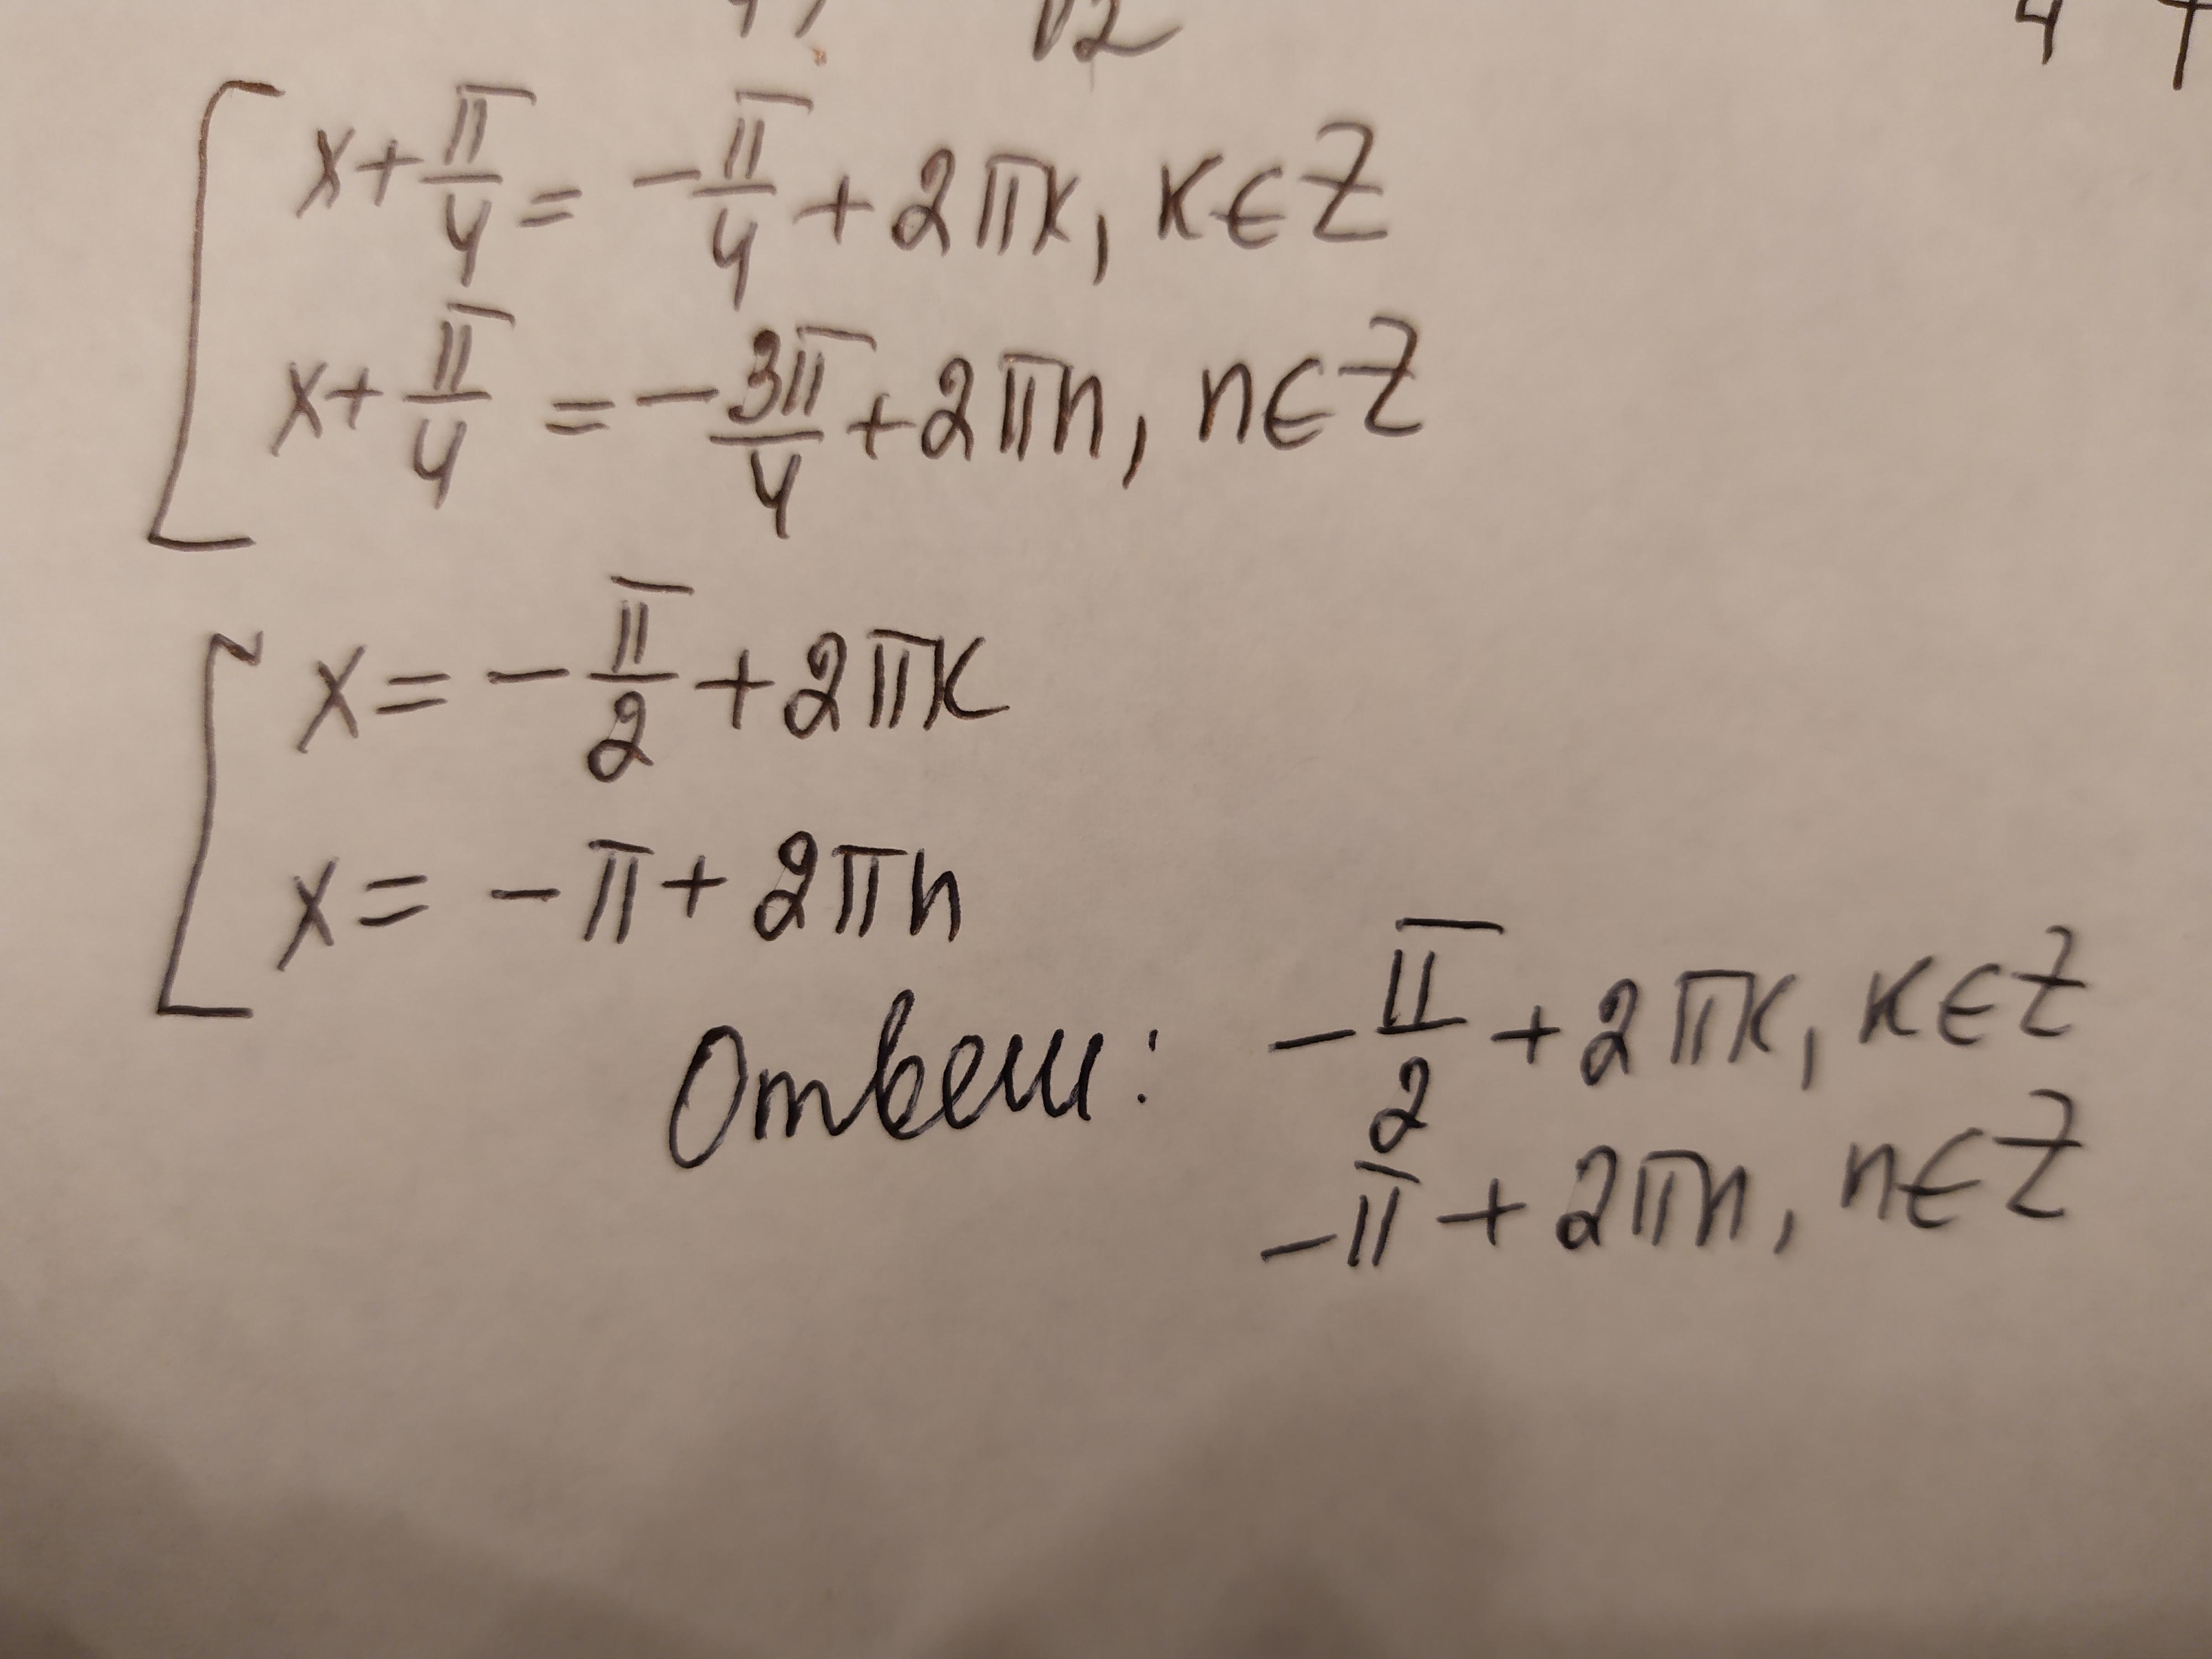 √2
x+π/4 = -π/4 + 2πk, k∈Z
x+π/4 = -3π/4 + 2πn, n∈Z
x = -π/2 + 2πk
x = -π + 2πn
Ответ: -π/2 + 2πk, k∈Z
-π + 2πn, n∈Z